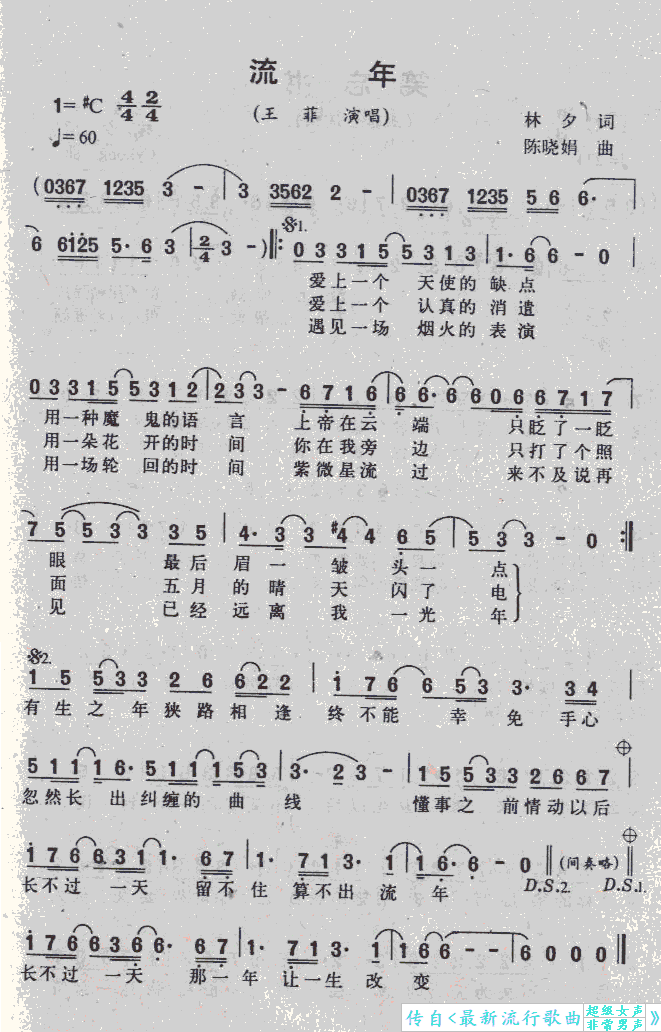 流 年
1=#C 4/4 2/4
(王 菲 演唱)
林 夕 词
♩=60
陈晓娟 曲
(0367 1235 3 - | 3 3562 2 - | 0367 1235 5 6 6·
6 6125 5·6 3 | 2/4 3 - ) ‖: 0 3 3 1 5 5 3 1 3 | 1·6 6 - 0
1.
爱上一个 天使的 缺点
爱上一个 认真的 消遣
遇见一场 烟火的 表演
0 3 3 1 5 5 3 1 2 | 2 3 3 - 6 7 1 6 | 6 6·6 6 0 6 6 7 1 7
用一种魔 鬼的语 言 上帝在云 端 只眨了一眨
用一朵花 开的时 间 你在我旁 边 只打了个照
用一场轮 回的时 间 紫微星流 过 来不及说再
7 5 5 3 3 3 5 | 4·3 3 #4 4 6 5 | 5 3 3 - 0 :‖
眼 最后 眉一 皱 头一 点
面 五月 的晴 天 闪了 电
见 已经 远离 我 一光 年
2.
1 5 5 3 3 2 6 6 2 2 | 1 7 6 6 5 3 3· 3 4 |
有生之年狭路相逢 终不能 幸免 手心
5 1 1 1 6· 5 1 1 1 1 5 3 | 3· 2 3 - | 1 5 5 3 3 2 6 6 7
忽然长 出纠缠的 曲 线 懂事之 前情动以后
1 7 6 6 3 1 1· 6 7 | 1· 7 1 3· 1 | 1 6· 6 - 0 ‖ (间奏略) ‖
长不过 一天 留不 住 算不出 流 年
D.S.2. D.S.1.
1 7 6 6 3 6 6· 6 7 | 1· 7 1 3· 1 | 1 6 6 - - - | 6 0 0 0 ‖
长不过 一天 那一 年 让一生 改 变
传自<最新流行歌曲 超级女声 非常男声 》